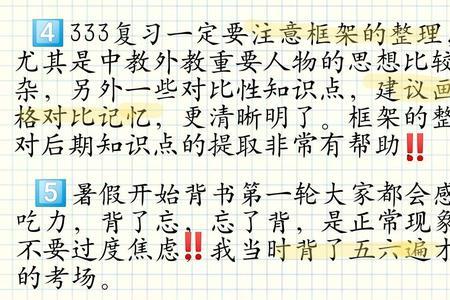 4 333复习一定要注意框架的整理,
尤其是中教外教重要人物的思想比较
杂，另外一些对比性知识点，建议画
格对比记忆，更清晰明了。框架的整
对后期知识点的提取非常有帮助‼️
5 暑假开始背书第一轮大家都会感
吃力，背了忘，忘了背，是正常现象
不要过度焦虑‼️我当时背了五六遍才
的考场。